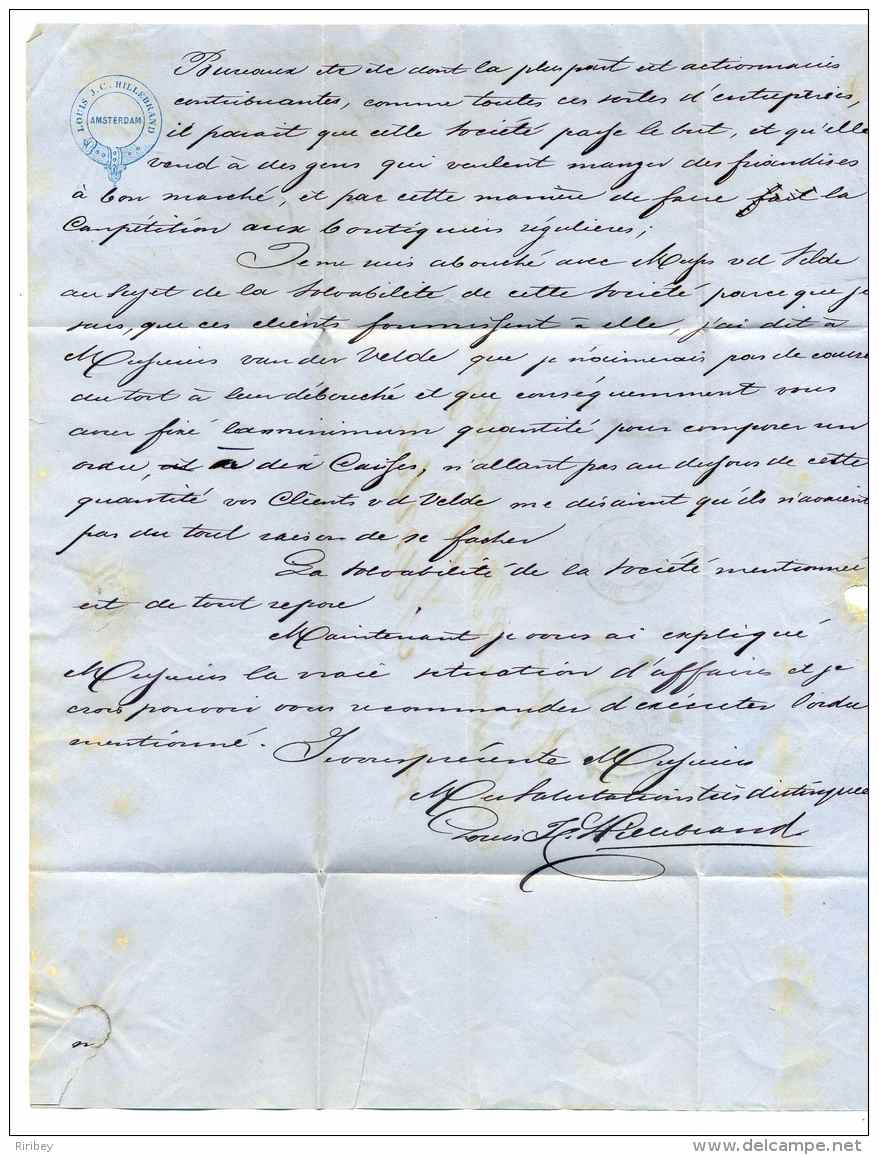 LOUIS J. C. HILLEBRAND
AMSTERDAM
Bureaux etc etc dont la plus part est actionnaires
contribuantes, comme toutes ces sortes d'entreprises,
il parait que cette Société passe le but, et qu'elle
vend à des gens qui veulent manger des friandises
à bon marché, et par cette manière de faire fait la
Compétition aux boutiquiers régulieres;
Je me suis abouché avec Messrs vd Velde
au sujet de la solvabilité de cette Société parce que je
sais, que ces clients fournissent à elle, j'ai dit à
Messieurs van der Velde que je n'aimerais pas de
du tort à leur débouché et que conséquemment vous
avez fixé la minimum quantité pour composer un
ordre, à dix Caisses, n'allant pas au dessous de cette
quantité vos Clients vd Velde me disaient qu'ils n'avaient
pas du tout raison de se facher
La solvabilité de la Société mentionnée
est de tout repos
Maintenant je vous ai expliqué
Messieurs la vraie situation d'affaires et je
crois pouvoir vous recommander d'exécuter l'ordre
mentionné. Je vous présente Messieurs
Mes Salutations très distinguées
Louis J.C. Hillebrand
Riribey
www.delcampe.net